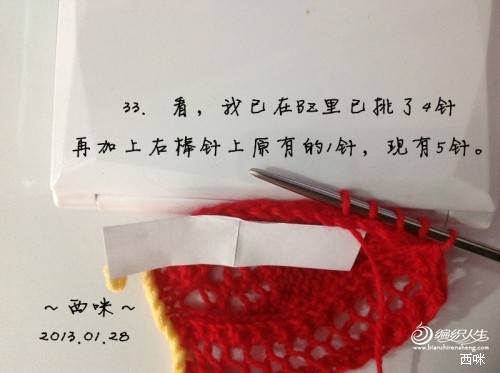 33. 看，我已在BZ里已挑了4针
再加上右棒针上原有的1针，现有5针。
～西咪～
2013.01.28
编织人生
www.bianzhirensheng.com
西咪